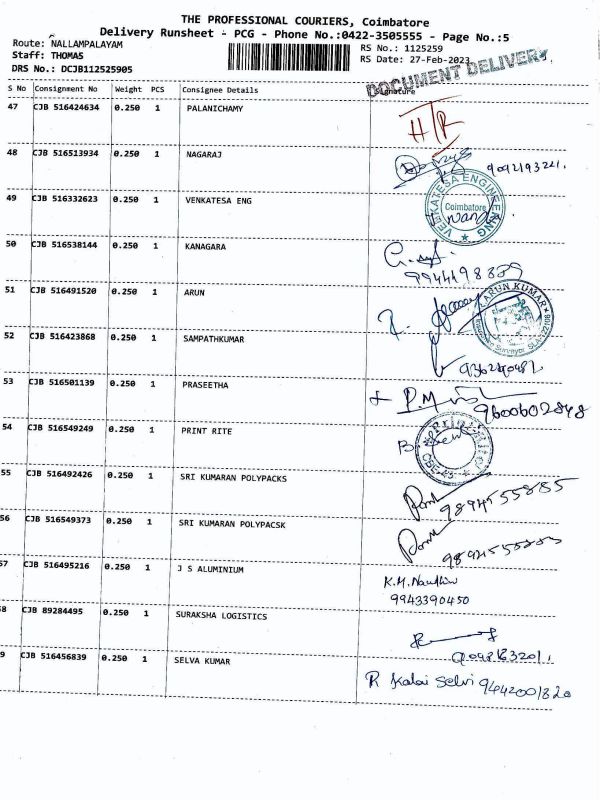 THE PROFESSIONAL COURIERS, Coimbatore
Delivery Runsheet - PCG - Phone No.:0422-3505555 - Page No.:5
Route: NALLAMPALAYAM
RS No.: 1125259
Staff: THOMAS
RS Date: 27-Feb-2023
DRS No.: DCJB112525905
DOCUMENT DELIVERY
S No Consignment No Weight PCS Consignee Details Signature
47 CJB 516424634 0.250 1 PALANICHAMY
H/R
48 CJB 516513934 0.250 1 NAGARAJ
49 CJB 516332623 0.250 1 VENKATESA ENG
VENKATESA ENGINEERING
Coimbatore
50 CJB 516538144 0.250 1 KANAGARA
51 CJB 516491520 0.250 1 ARUN
ARUN KUMAR
52 CJB 516423868 0.250 1 SAMPATHKUMAR
53 CJB 516501139 0.250 1 PRASEETHA
9600602848
54 CJB 516549249 0.250 1 PRINT RITE
55 CJB 516492426 0.250 1 SRI KUMARAN POLYPACKS
9894555885
56 CJB 516549373 0.250 1 SRI KUMARAN POLYPACSK
57 CJB 516495216 0.250 1 J S ALUMINIUM
9943390450
8 CJB 89284495 0.250 1 SURAKSHA LOGISTICS
9 CJB 516456839 0.250 1 SELVA KUMAR
R Kalai Selvi 9442001820